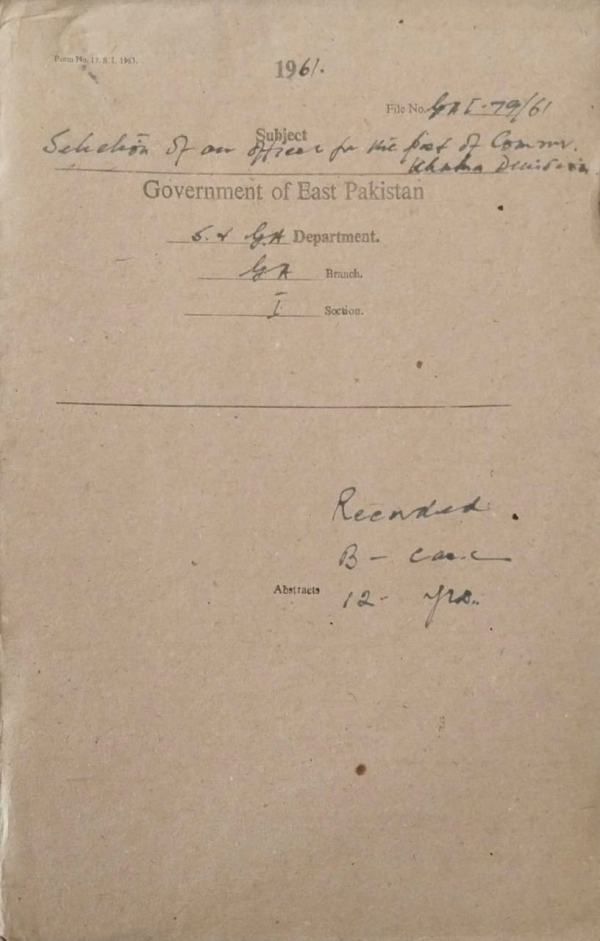 Form No. 17. S. I. 1963.
1961.
File No. GAI-79/61
Subject
Selection of an officer for the post of Commr.
Khulna Division
Government of East Pakistan
S. & GA Department.
GA Branch.
I Section.
Recorded.
B - case
Abstracts
12 - yrs.